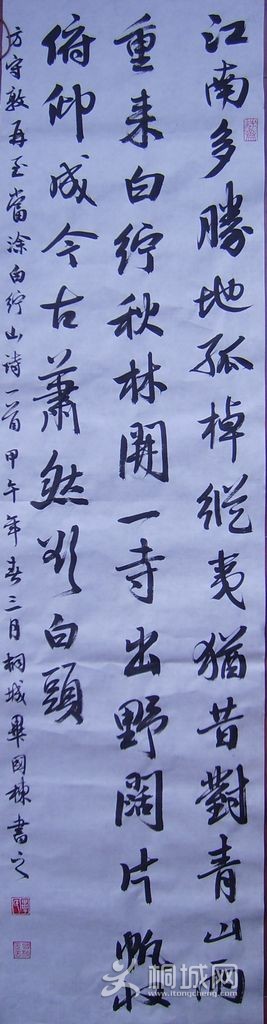 江南多勝地孤棹縱夷猶昔對青山雨
重来白紵秋林開一寺出野闊片帆收
俯仰成今古蕭然欲白頭
方守敦再至當涂白紵山诗一首甲午年春三月桐城畢国棟書之
桐城网
www.itongcheng.com